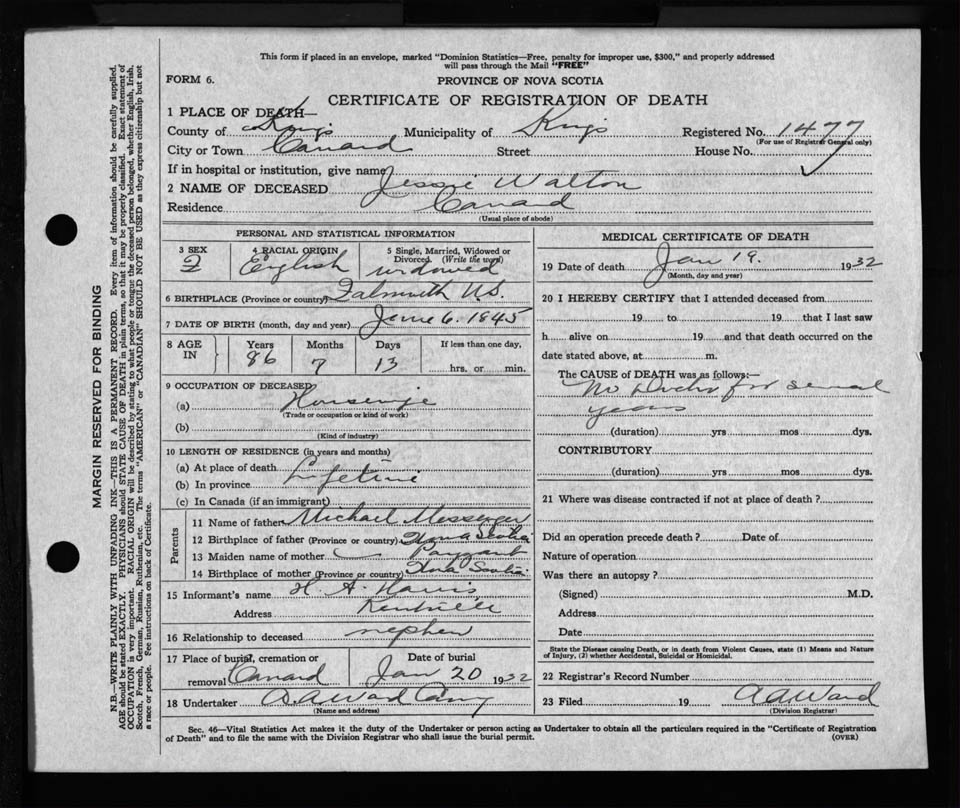 This form if placed in an envelope, marked "Dominion Statistics—Free, penalty for improper use, $300," and properly addressed
will pass through the Mail "FREE"
FORM 6.
PROVINCE OF NOVA SCOTIA
CERTIFICATE OF REGISTRATION OF DEATH
1 PLACE OF DEATH—
County of Kings Municipality of Kings Registered No. 1477
(For use of Registrar General only)
City or Town Canard Street House No.
If in hospital or institution, give name
2 NAME OF DECEASED Jessie Walton
Residence Canard
(Usual place of abode)
PERSONAL AND STATISTICAL INFORMATION
3 SEX F
4 RACIAL ORIGIN English
5 Single, Married, Widowed or
Divorced. (Write the word)
widowed
6 BIRTHPLACE (Province or country) Falmouth N.S.
7 DATE OF BIRTH (month, day and year) June 6. 1845
8 AGE IN Years 86 Months 7 Days 13 If less than one day,
hrs. or min.
9 OCCUPATION OF DECEASED
(a) Housewife
(Trade or occupation or kind of work)
(b)
(Kind of industry)
10 LENGTH OF RESIDENCE (in years and months)
(a) At place of death
(b) In province Lifetime
(c) In Canada (if an immigrant)
Parents
11 Name of father Michael Messenger
12 Birthplace of father (Province or country) Nova Scotia
13 Maiden name of mother Payzant
14 Birthplace of mother (Province or country) Nova Scotia
15 Informant's name H. A. Harris
Address Kentville
16 Relationship to deceased nephew
17 Place of burial, cremation or
removal Canard
Date of burial
Jan 20 1932
18 Undertaker A.A. Ward
(Name and address)
MEDICAL CERTIFICATE OF DEATH
19 Date of death Jan 19. 1932
(Month, day and year)
20 I HEREBY CERTIFY that I attended deceased from
19 to 19 that I last saw
h alive on 19 and that death occurred on the
date stated above, at m.
The CAUSE of DEATH was as follows:—
No Doctor for several
years
(duration) yrs mos dys.
CONTRIBUTORY
(duration) yrs mos dys.
21 Where was disease contracted if not at place of death?
Did an operation precede death? Date of
Nature of operation
Was there an autopsy?
(Signed) M.D.
Address
Date
State the Disease causing Death, or in death from Violent Causes, state (1) Means and Nature
of Injury, (2) whether Accidental, Suicidal or Homicidal.
22 Registrar's Record Number
23 Filed 19 A A Ward
(Division Registrar)
Sec. 46—Vital Statistics Act makes it the duty of the Undertaker or person acting as Undertaker to obtain all the particulars required in the "Certificate of Registration
of Death" and to file the same with the Division Registrar who shall issue the burial permit.
(OVER)
MARGIN RESERVED FOR BINDING
N.B.—WRITE PLAINLY WITH UNFADING INK—THIS IS A PERMANENT RECORD. Every item of information should be carefully supplied.
AGE should be stated EXACTLY. PHYSICIANS should STATE CAUSE OF DEATH in plain terms, so that it may be properly classified. Exact statement of
OCCUPATION is very important. RACIAL ORIGIN will be described by stating to what people or tongue the deceased person belonged, whether English, Irish,
Scotch, French, German, Russian, Ruthenian, etc. The terms "AMERICAN" or "CANADIAN" SHOULD NOT BE USED as they express citizenship but not
a race or people. See instructions on back of Certificate.